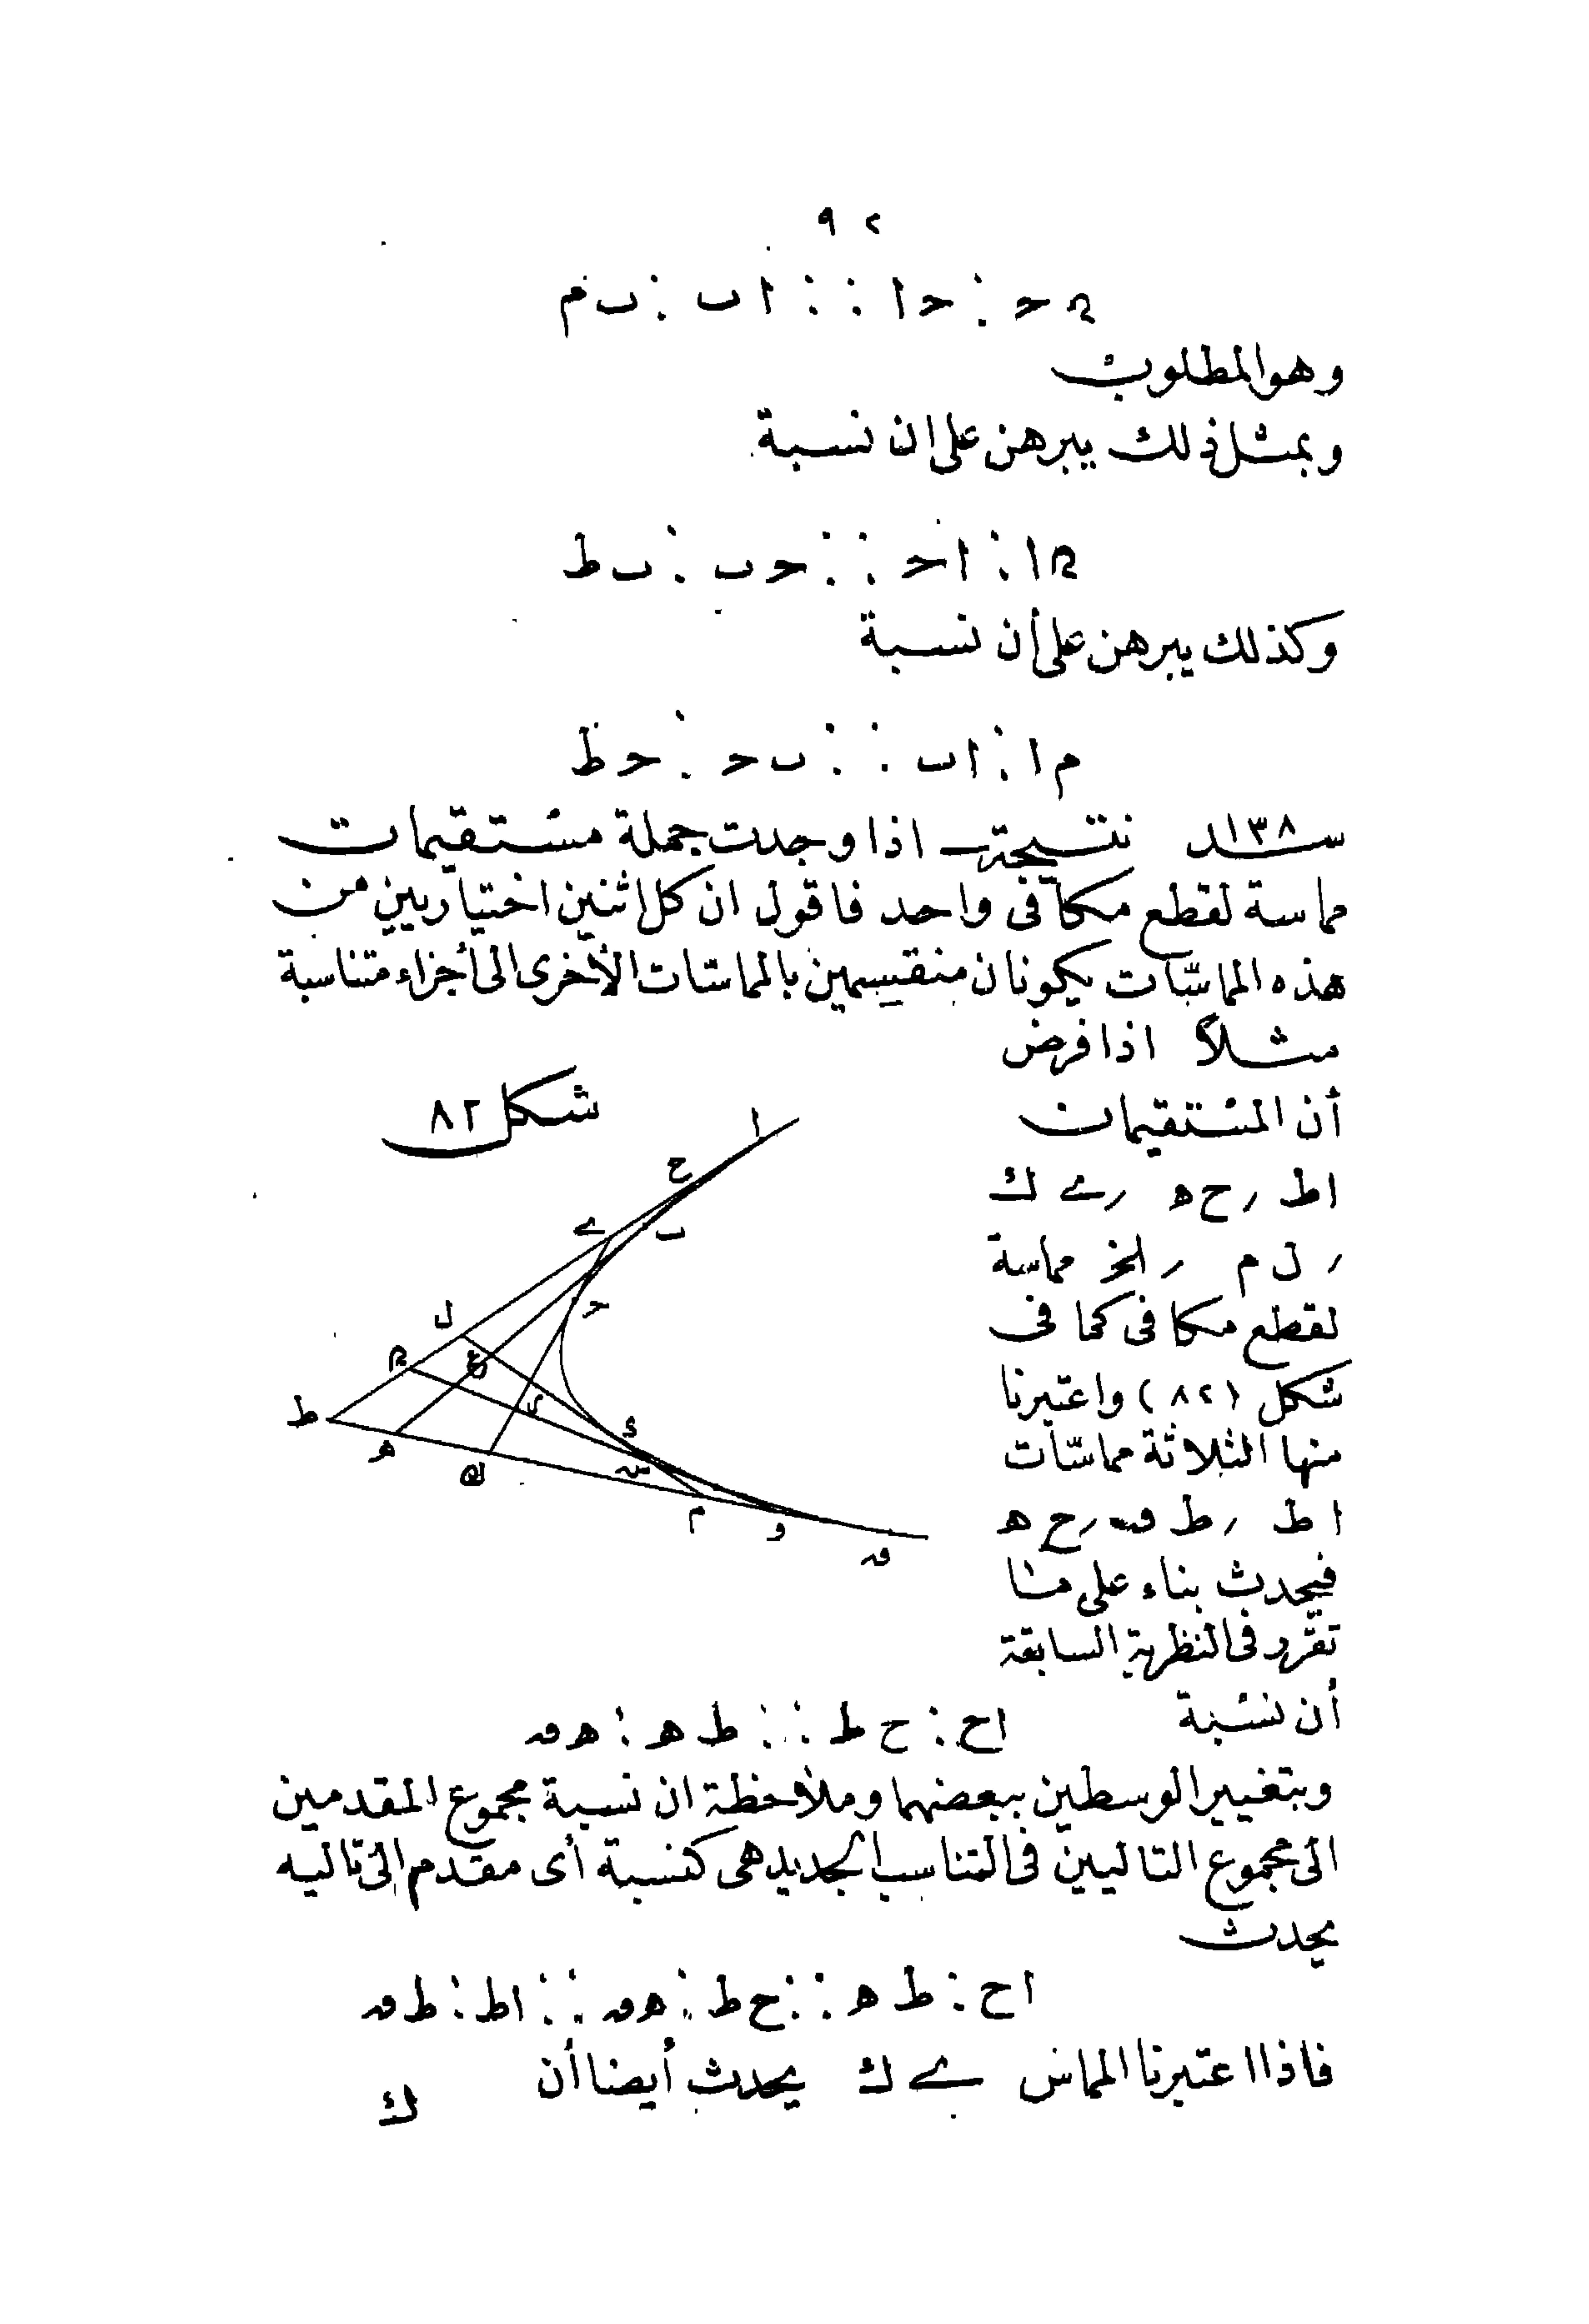 ٩٢
ﻫ ح : ح ا :: ا ب : ب م
وهو المطلوب
وبمثل ذلك يبرهن على ان نسبة
ﻫ ا : ا ح :: ح ب : ب ط
وكذلك يبرهن على أن نسبة
م ا : ا ب :: ب ح : ح ط
سـ١٣٨ـد نتيجة ـ اذا وجدت جملة مستقيمات
مماسة لقطع مكافى واحد فاقول ان كل اثنين اختياريين من
هذه المماسّات يكونان منقسمين بالمماسّات الأخرى الى أجزاء متناسبة
مثلاً اذا فرض
أن المستقيمات
اط ر ح ﻫ ر ے ك
ر ل م ر الخ مماسة
لقطع مكافى كما فى
شكل (٨٢) واعتبرنا
منها الثلاثة مماسّات
ا ط ر ط ق ر ح ﻫ
فيحدث بناء على ما
تقرر فى النظرية السابقة
أن نسبة ا ح : ح ط :: ط ﻫ : ﻫ ق
وبتغيير الوسطين ببعضهما وملاحظة ان نسبة مجموع المقدمين
الى مجموع التاليين فى التناسب الجديد هى كنسبة أى مقدم الى تاليه
يحدث
ا ح : ط ﻫ :: ح ط : ﻫ ق :: ا ط : ط ق
فاذا اعتبرنا المماس ے ك يحدث أيضا أن
ك
شكل ٨٢
ا
ح
ے
ب
ح
ل
ع
ط
ﻫ
ك
س
م
و
ق